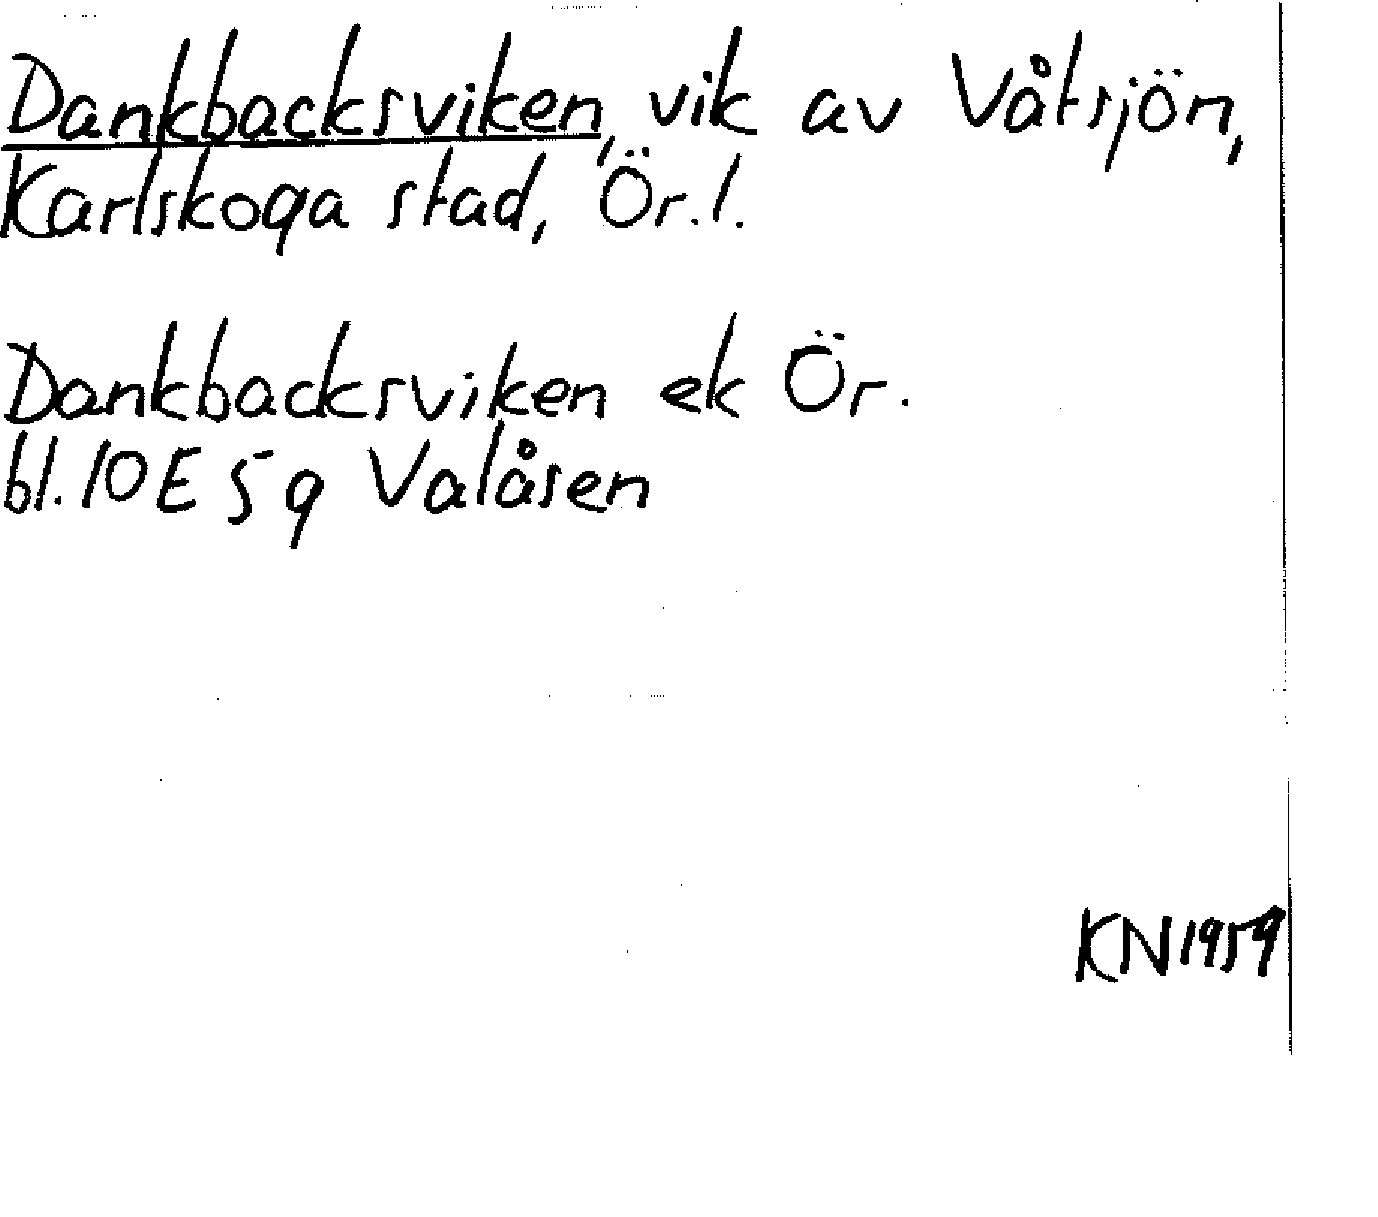 Dankbacksviken, vik av Våtsjön,
Karlskoga stad, Ör. l.
Dankbacksviken ek Ör.
bl. 10E 5g Valåsen
KN1959